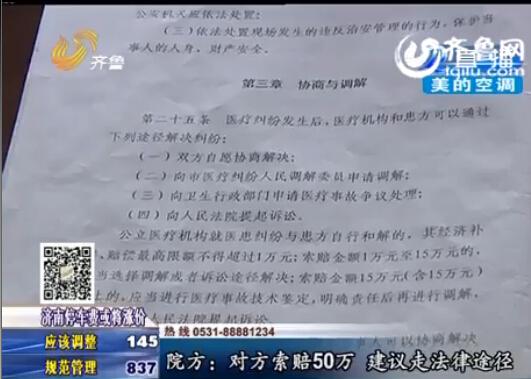 公安机关应依法处置;
(三)依法处置现场发生的违反治安管理的行为,保护当
事人的人身、财产安全。
齐鲁
齐鲁网
直播
iqilu.com
美的空调
第三章 协商与调解
第二十五条 医疗纠纷发生后,医疗机构和患方可以通过
下列途径解决纠纷:
(一)双方自愿协商解决;
(二)向市医疗纠纷人民调解委员申请调解;
(三)向卫生行政部门申请医疗事故争议处理;
(四)向人民法院提起诉讼。
公立医疗机构就医患纠纷与患方自行和解的,其经济补
、赔偿最高限额不得超过1万元;索赔金额1万元至15万元的,
当选择调解或者诉讼途径解决;索赔金额15万元(含15万元)
上的,应当进行医疗事故技术鉴定,明确责任后再进行调解,
人民法院提起诉讼。
事人可以协商解决
济南停车费或将涨价
应该调整 145
规范管理 837
热线 0531-88881234
院方:对方索赔50万 建议走法律途径